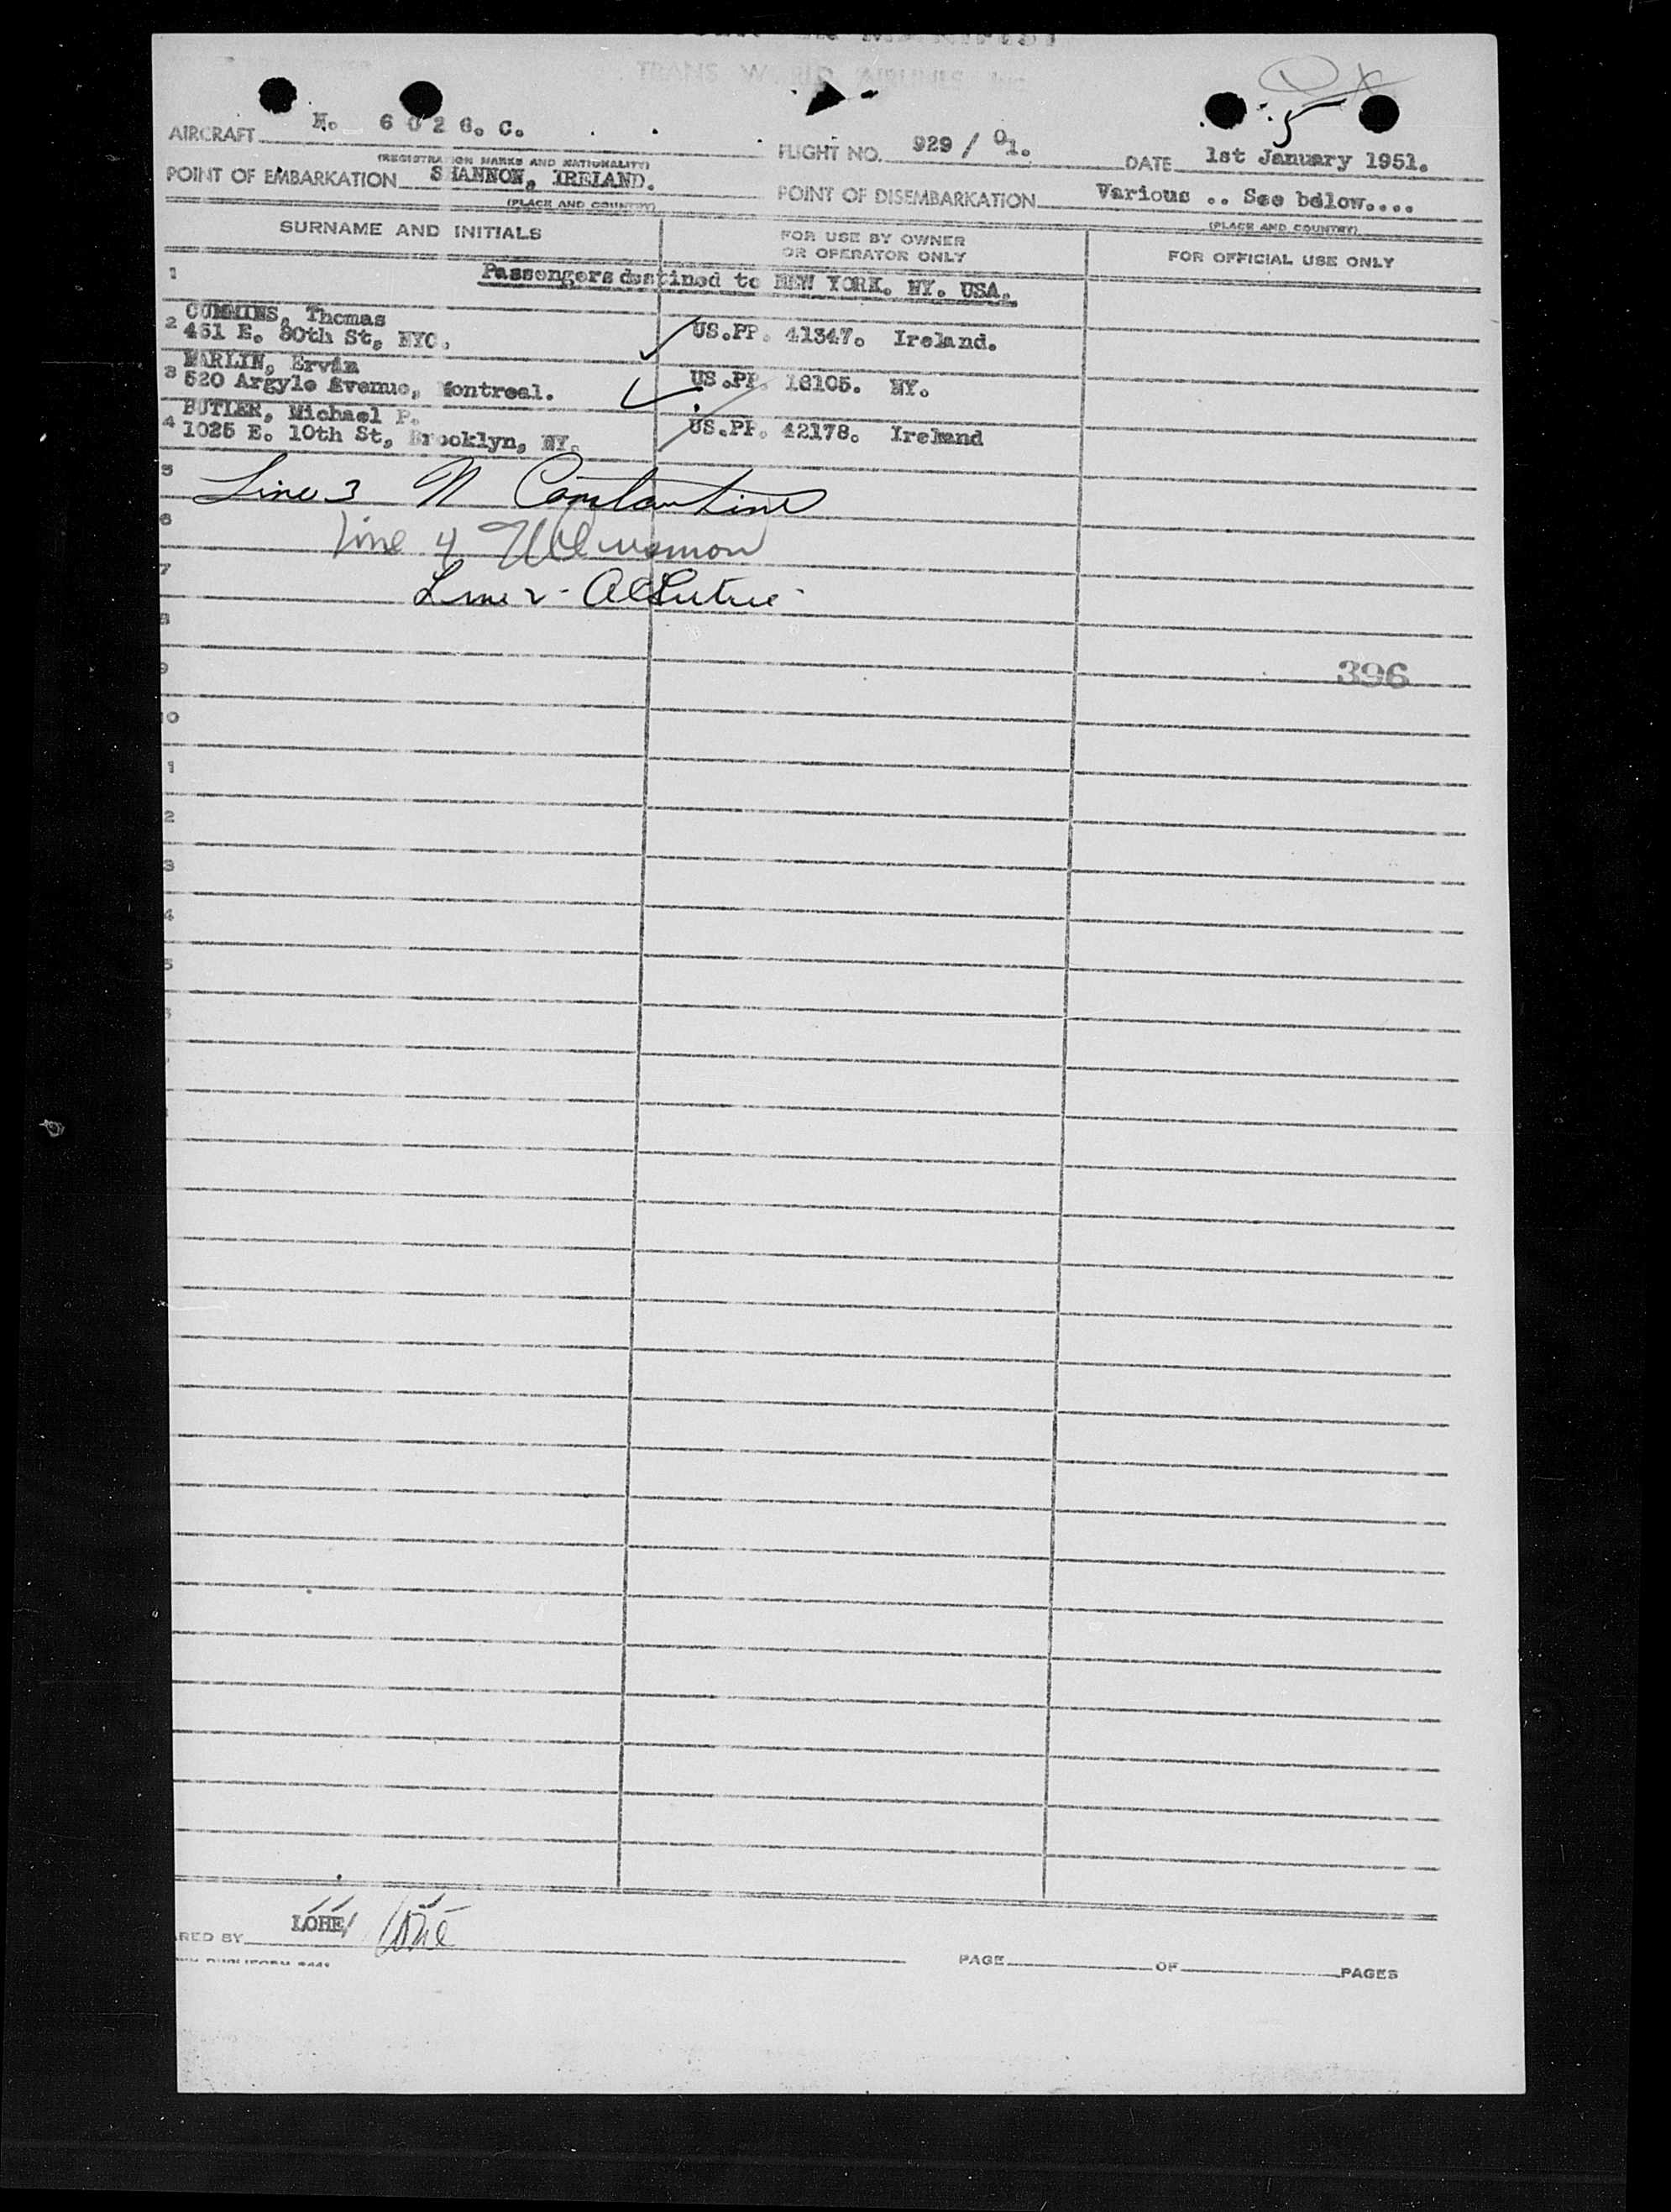 TRANS WORLD AIRLINES, INC.
5
AIRCRAFT N. 6026. C. FLIGHT NO. 929 / 01. DATE 1st January 1951.
(REGISTRATION MARKS AND NATIONALITY)
POINT OF EMBARKATION SHANNON, IRELAND. POINT OF DISEMBARKATION Various .. See below....
(PLACE AND COUNTRY) (PLACE AND COUNTRY)
SURNAME AND INITIALS FOR USE BY OWNER OR OPERATOR ONLY FOR OFFICIAL USE ONLY
1 Passengers destined to NEW YORK. NY. USA.
CUMMINS, Thomas
2 451 E. 80th St, NYC. US.PP. 41347. Ireland.
MARLIN, Ervin
3 520 Argyle Avenue, Montreal. US.PP. 16105. NY.
BUTLER, Michael P.
4 1025 E. 10th St, Brooklyn, NY. US.PP. 42178. Ireland
5 Line 3 N Constantine
6 Line 4
7 Line 2 -
8
9 396
10
1
2
3
4
5
LOHE/
ARED BY
PAGE OF PAGES